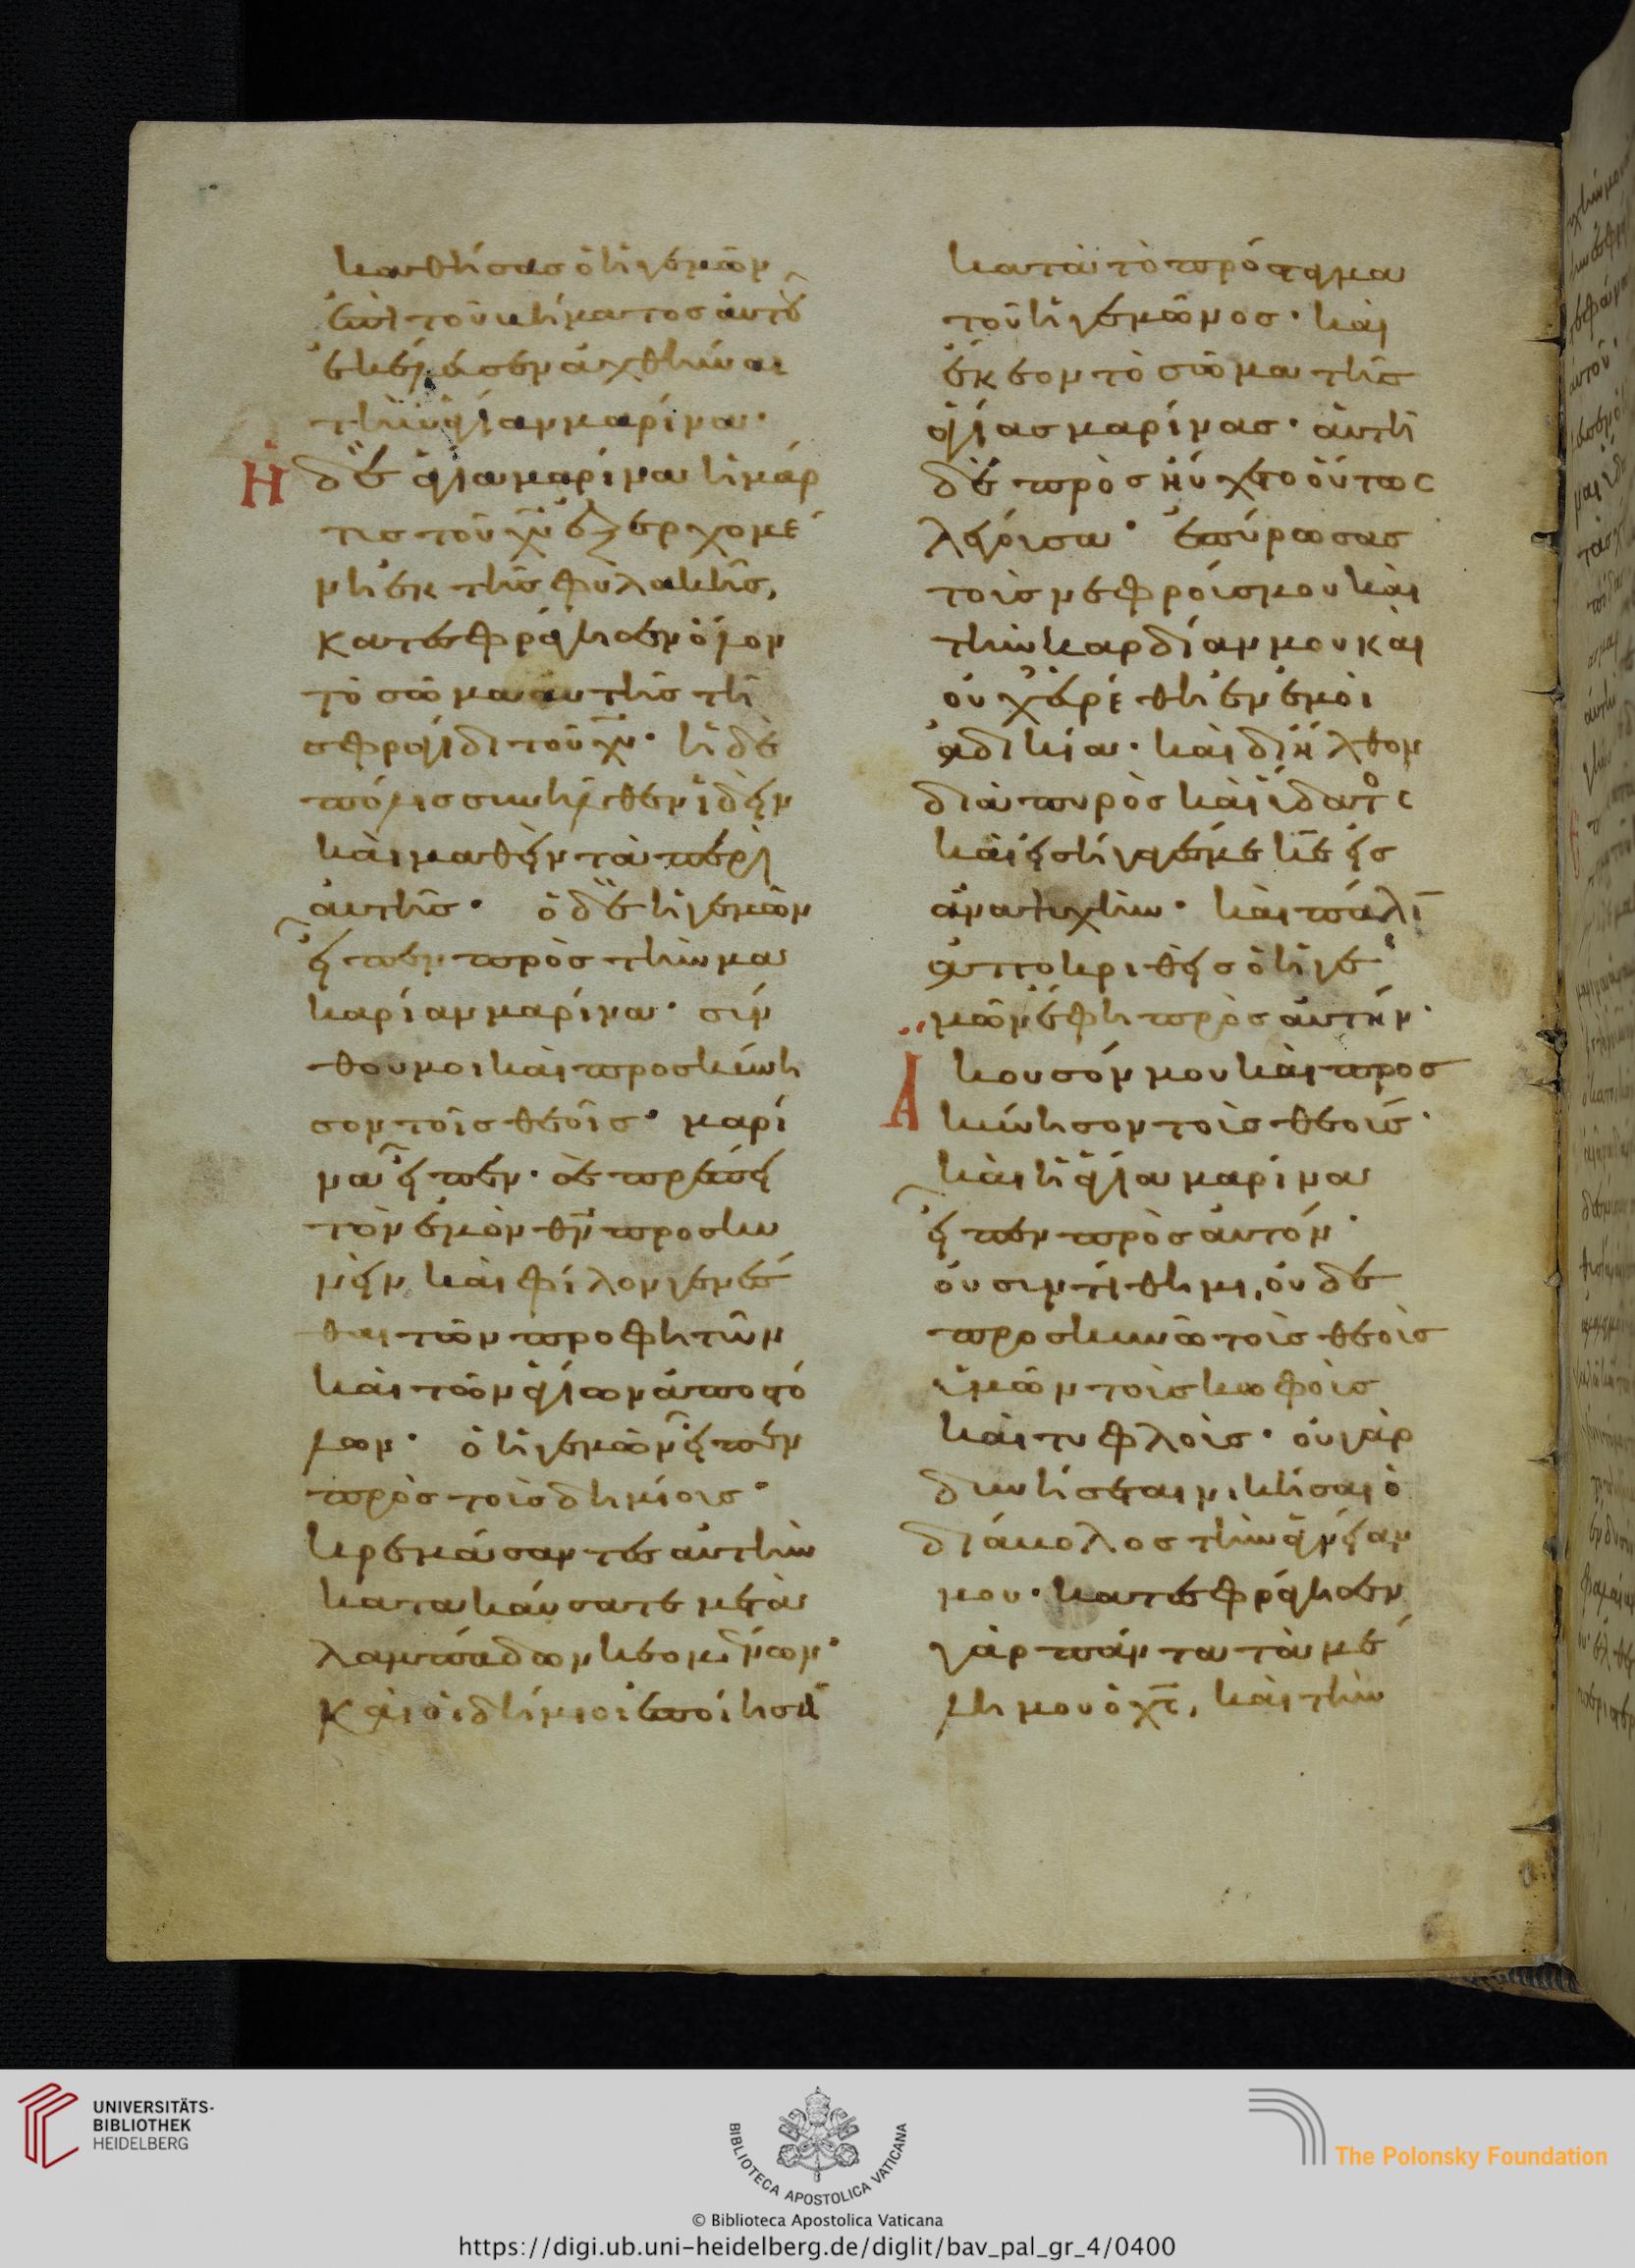 καθήσας ὁ ἡγεμῶν
ἐπὶ τοῦ βήματος αὐτοῦ
ἐκέλευσεν ἀχθῆναι
τὴν ἁγίαν μαρίνα·
Ἡ δὲ ἁγία μαρίνα ἡ μάρ
τις τοῦ χυ ἐξερχομέ
νη ἐκ τῆς φυλακῆς,
κατεσφράγησεν ὅλον
τὸ σῶμα αὐτῆς τῆ
σφραγίδι τοῦ χυ· ἡ δὲ
πόλις συνῆλθεν ἰδεῖν
καὶ μαθεῖν τὰ περὶ
αὐτῆς· ὁ δὲ ἡγεμῶν
εἶπεν πρὸς τὴν μα
καρίαν μαρίνα· σύν
θου μοι καὶ προσκύνη
σον τοῖς θεοῖς· μαρί
να εἶπεν· σὲ πρέπει
τὸν ἐμὸν θν προσκυ
νεῖν καὶ φίλον γενέσ
θαι τῶν προφητῶν
καὶ τῶν ἁγίων ἀποστό
λων· ὁ ἡγεμῶν εἶπεν
πρὸς τοῖς δημίοις·
κρεμάσαντες αὐτὴν
κατακαύσατε μετὰ
λαμπάδων κεομένων·
καὶ οἱ δήμιοι ἐποίησαν
κατὰ τὸ πρόσταγμα
τοῦ ἡγεμῶνος· καὶ
ἔκεον τὸ σῶμα τῆς
ἁγίας μαρίνας· αὐτὴ
δὲ προσηύχετο οὕτως
λέγουσα· ἐπύρωσας
τοὶς νεφροίς μου καὶ
τὴν καρδίαν μου καὶ
οὐχ εὑρέθη ἐν ἐμοὶ
ἀδικία· καὶ διῆλθον
διὰ πυρὸς καὶ ὕδατος
καὶ εἰσήγαγέ με εἰς
ἀναψυχήν· καὶ πάλιν
ἀποκριθεὶς ὁ ἡγε
μῶν ἔφη πρὸς αὐτήν·
Ἄκουσόν μου καὶ προσ
κύνησον τοῖς θεοῖς·
καὶ ἡ ἁγία μαρίνα
εἶπεν πρὸς αὐτόν·
οὐ συντίθημι, οὐδὲ
προσκυνῶ τοὶς θεοὶς
ὑμῶν τοὶς κωφοὶς
καὶ τυφλοὶς· οὐ γὰρ
δυνήσεται νικῆσαι ὁ
διάβολος τὴν ἁγνείαν
μου· κατεσφράγησεν
γὰρ πάντα τὰ μέ
λη μου ὁ χς, καὶ τὴν
UNIVERSITÄTS-
BIBLIOTHEK
HEIDELBERG
BIBLIOTECA APOSTOLICA VATICANA
The Polonsky Foundation
© Biblioteca Apostolica Vaticana
https://digi.ub.uni-heidelberg.de/diglit/bav_pal_gr_4/0400